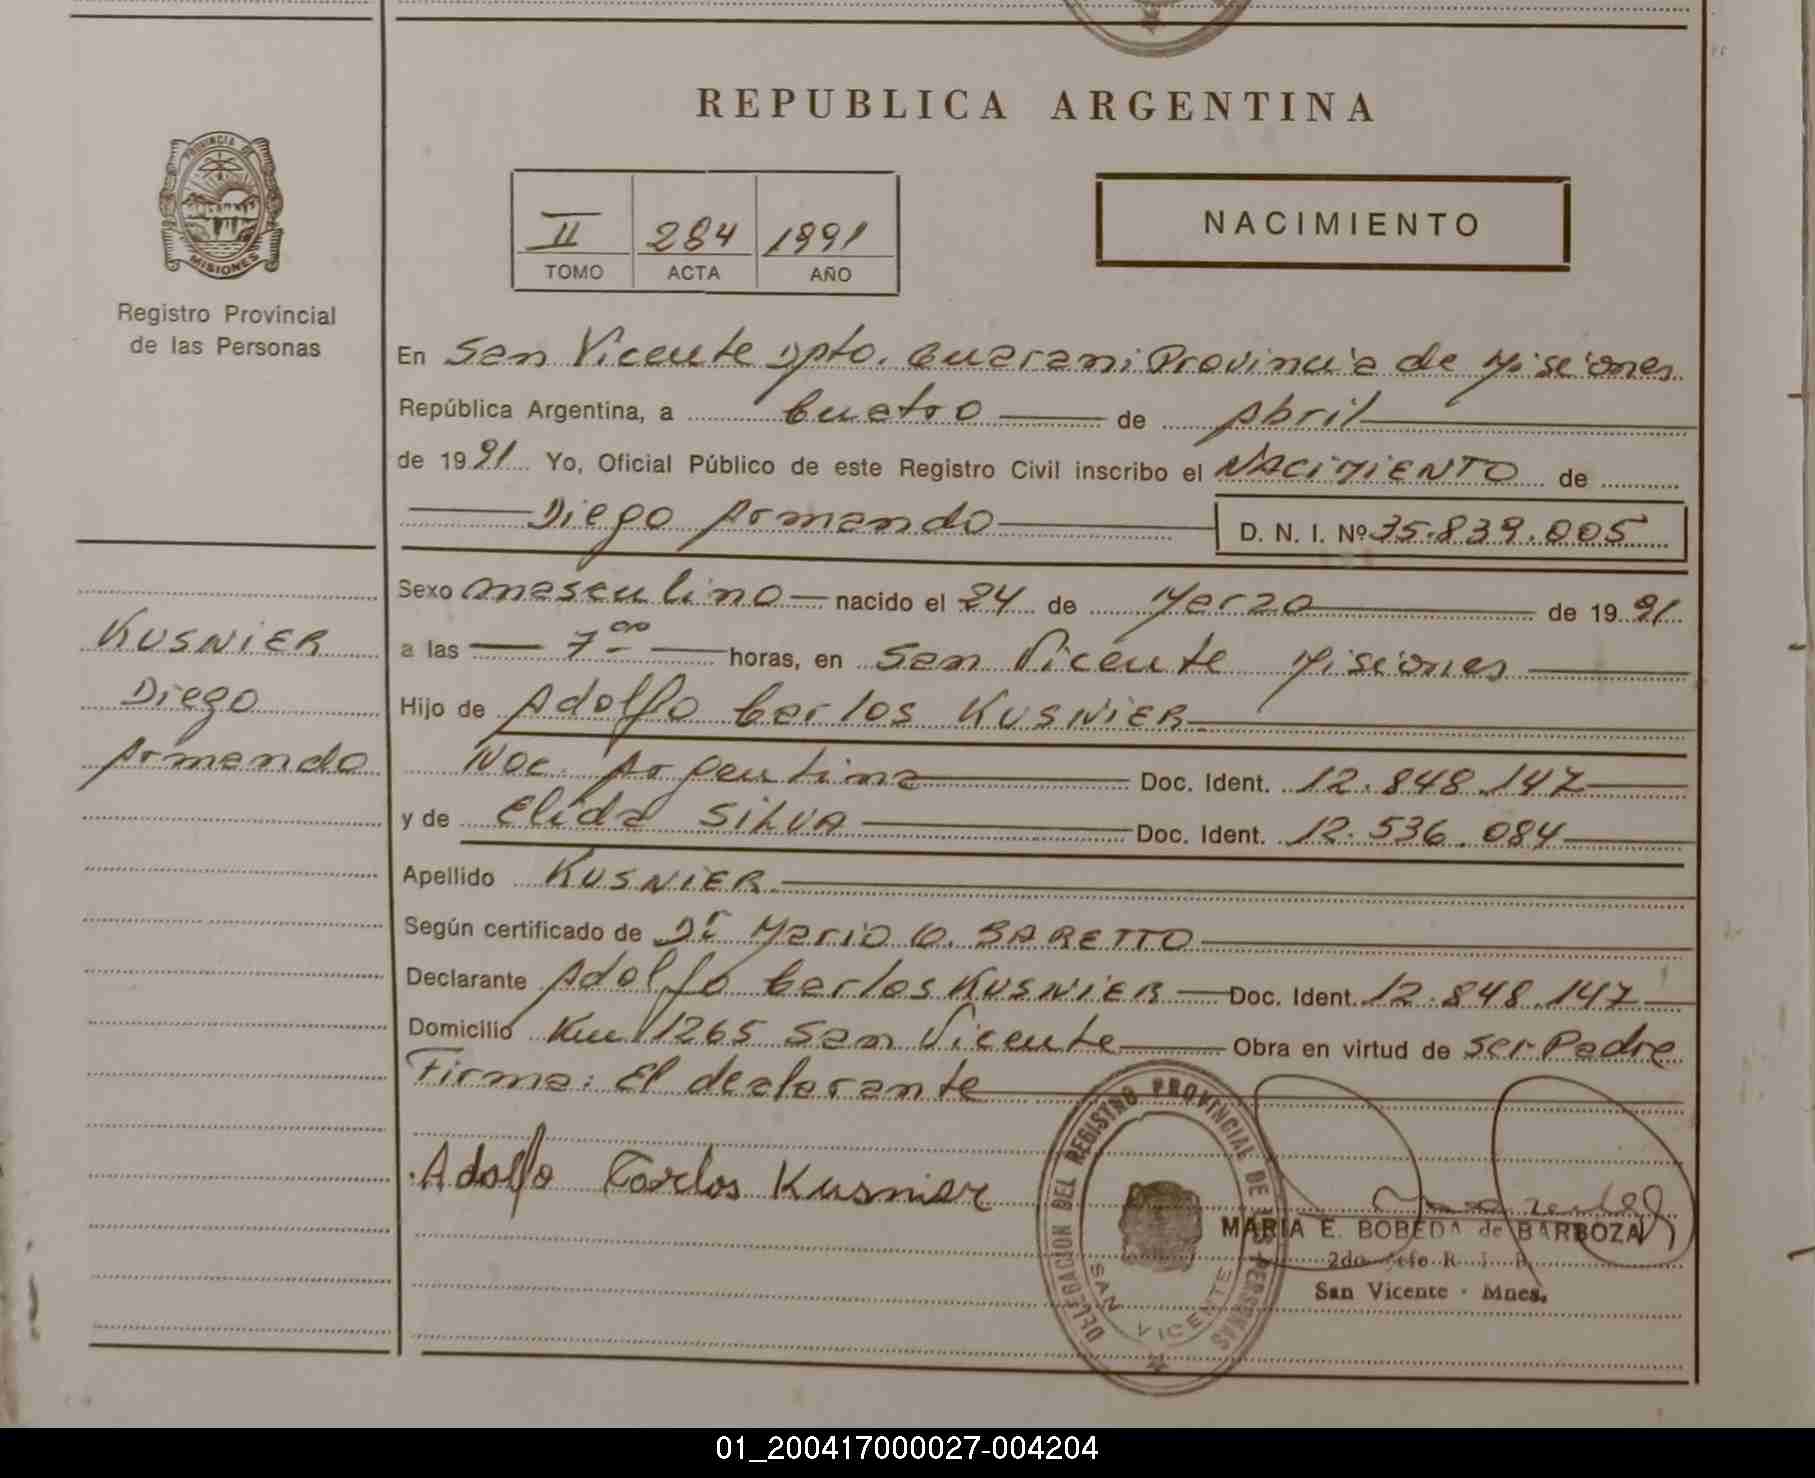 REPUBLICA ARGENTINA
PROVINCIA DE
MISIONES
Registro Provincial
de las Personas
II 284 1991
TOMO ACTA AÑO
NACIMIENTO
En San Vicente Dpto. Guarani Provincia de Misiones
República Argentina, a cuatro de Abril
de 1991 Yo, Oficial Público de este Registro Civil inscribo el NACIMIENTO de
Diego Armando D. N. I. Nº 35.839.005
Sexo masculino nacido el 24 de Marzo de 1991
a las 7 00 horas, en San Vicente Misiones
Hijo de Adolfo Carlos KUSNIER
Nac. Argentina Doc. Ident. 12.848.147
y de Elida SILVA Doc. Ident. 12.536.084
Apellido KUSNIER
Según certificado de Dr Mario O. BARETTO
Declarante Adolfo Carlos KUSNIER Doc. Ident. 12.848.147
Domicilio Km 1265 San Vicente Obra en virtud de ser Padre
Firma: El declarante
Adolfo Carlos Kusnier
KUSNIER
Diego
Armando
DELEGACION DEL REGISTRO PROVINCIAL DE LAS PERSONAS
SAN VICENTE
MARIA E. BOBEDA de BARBOZA
2do Jefe R.
San Vicente - Mnes.
01_200417000027-004204